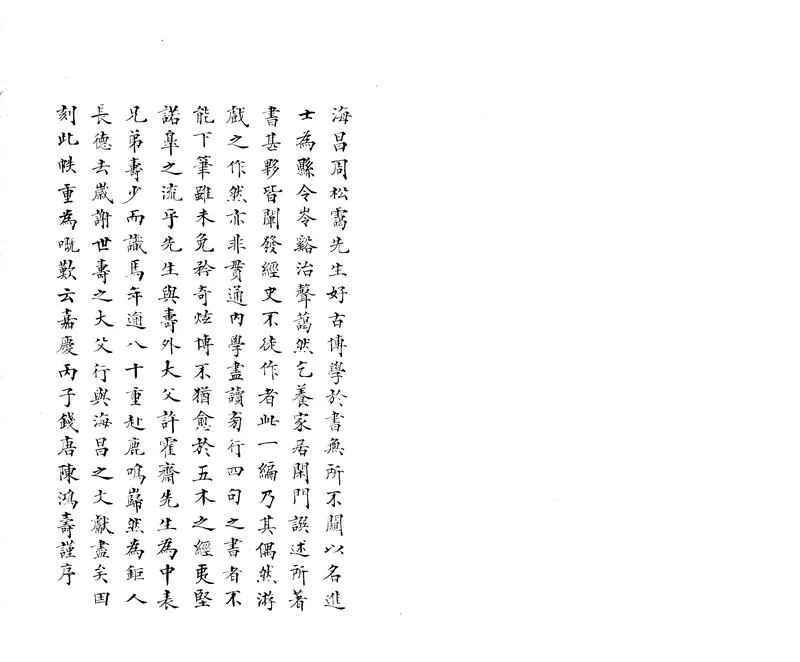 海昌周松靄先生好古博學於書無所不闚以名進
士為縣令岑谿治聲藹然乞養家居閑門譔述所著
書甚夥皆闡發經史不徒作者此一編乃其偶然游
戲之作然亦非貫通內學盡讀旁行四句之書者不
能下筆雖未免矜奇炫博不猶愈於五木之經夷堅
諾皐之流乎先生與壽外大父許霍齋先生為中表
兄弟壽少而識焉年逾八十重赴鹿鳴巋然為鉅人
長德去歲謝世壽之大父行與海昌之文獻盡矣因
刻此帙重為嘅歎云嘉慶丙子錢唐陳鴻壽謹序